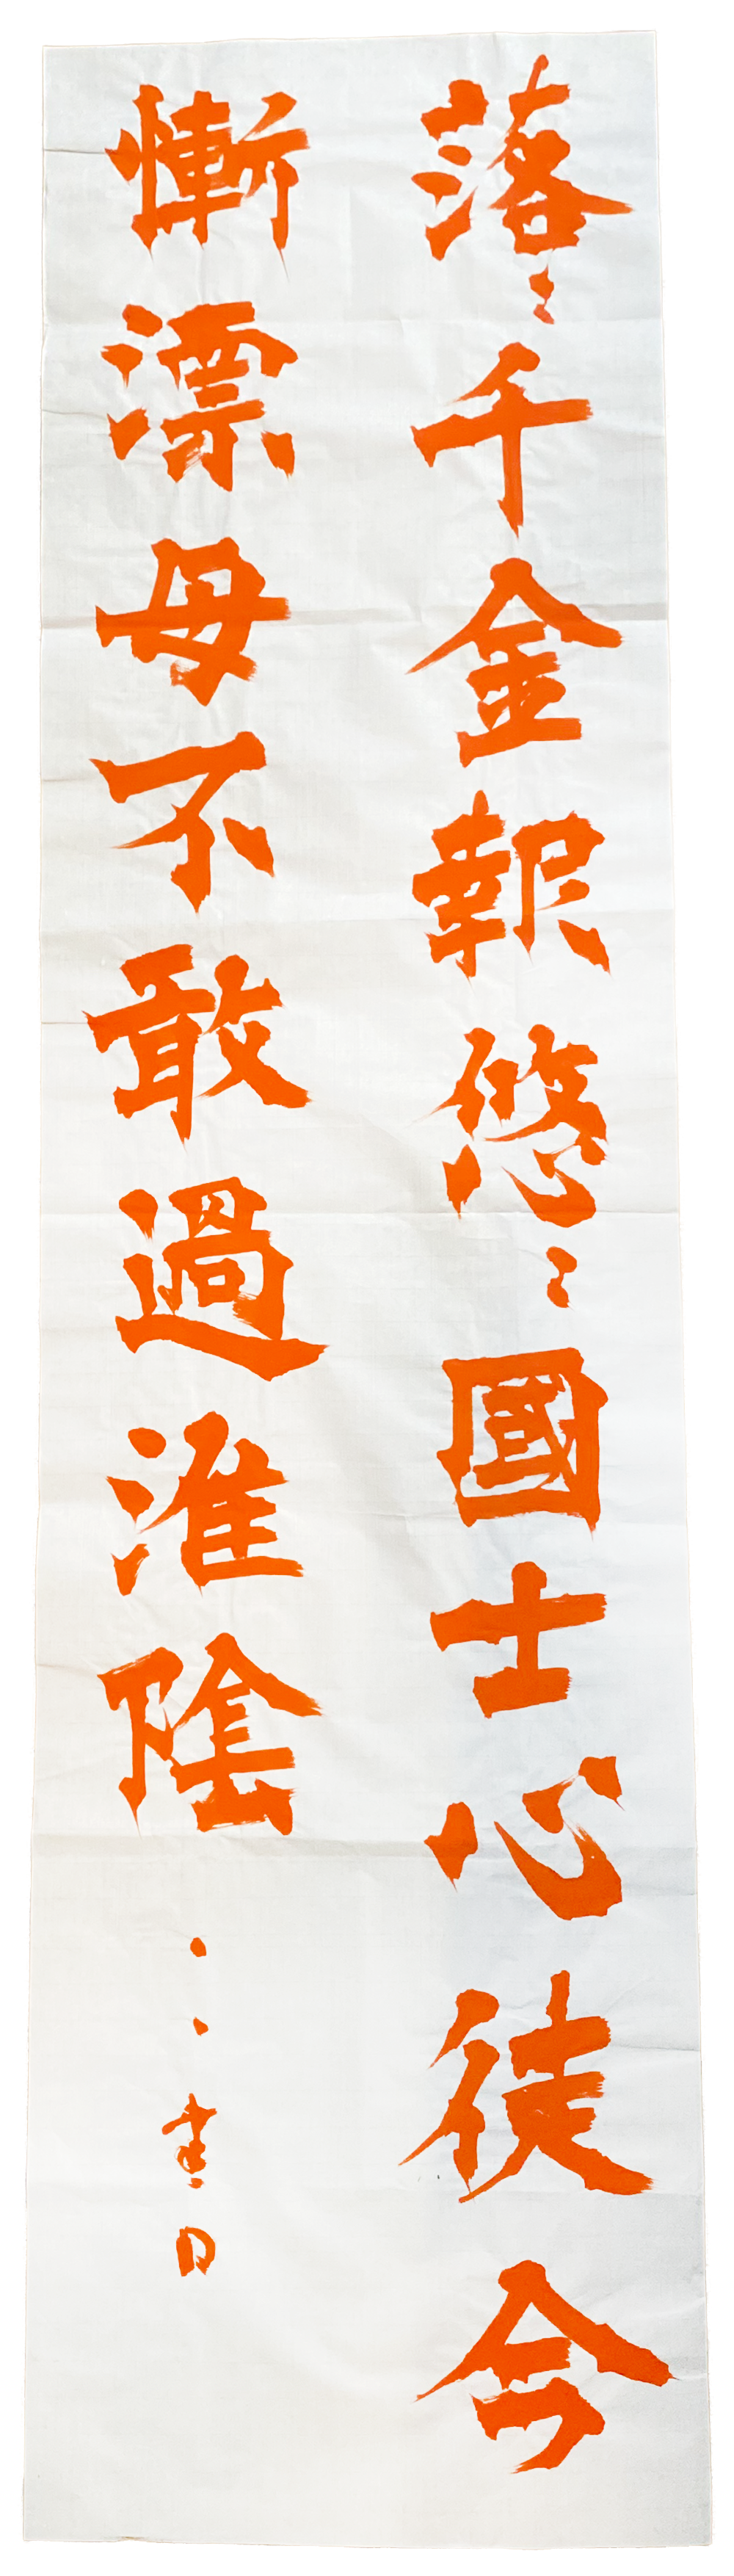 落〻千金報悠〻國士心徒令
慚漂母不敢過淮陰